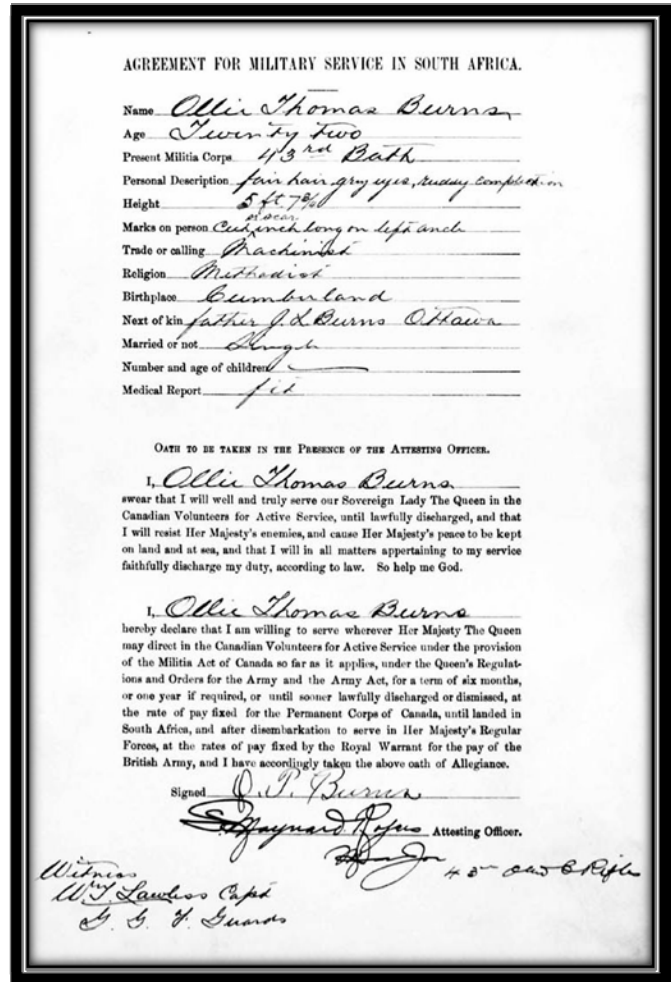 AGREEMENT FOR MILITARY SERVICE IN SOUTH AFRICA.
Name Ollie Thomas Burns
Age Twenty two
Present Militia Corps 43rd Batt
Personal Description fair hair, grey eyes, ruddy complection
Height 5 ft. 7¾
or scar
Marks on person Cut inch long on left
Trade or calling Machinist
Religion Methodist
Birthplace Cumberland
Next of kin father J. L Burns Ottawa
Married or not Single
Number and age of children —
Medical Report fit
OATH TO BE TAKEN IN THE PRESENCE OF THE ATTESTING OFFICER.
I, Ollie Thomas Burns
swear that I will well and truly serve our Sovereign Lady The Queen in the
Canadian Volunteers for Active Service, until lawfully discharged, and that
I will resist Her Majesty's enemies, and cause Her Majesty's peace to be kept
on land and at sea, and that I will in all matters appertaining to my service
faithfully discharge my duty, according to law. So help me God.
I, Ollie Thomas Burns
hereby declare that I am willing to serve wherever Her Majesty The Queen
may direct in the Canadian Volunteers for Active Service under the provision
of the Militia Act of Canada so far as it applies, under the Queen's Regulat-
ions and Orders for the Army and the Army Act, for a term of six months,
or one year if required, or until sooner lawfully discharged or dismissed, at
the rate of pay fixed for the Permanent Corps of Canada, until landed in
South Africa, and after disembarkation to serve in Her Majesty's Regular
Forces, at the rates of pay fixed by the Royal Warrant for the pay of the
British Army, and I have accordingly taken the above oath of Allegiance.
Signed O. T. Burns
S. Maynard Rogers Attesting Officer.
Major 43rd O & C Rifles
Witness
Wm T. Lawless Capt
G. G. F. Guards